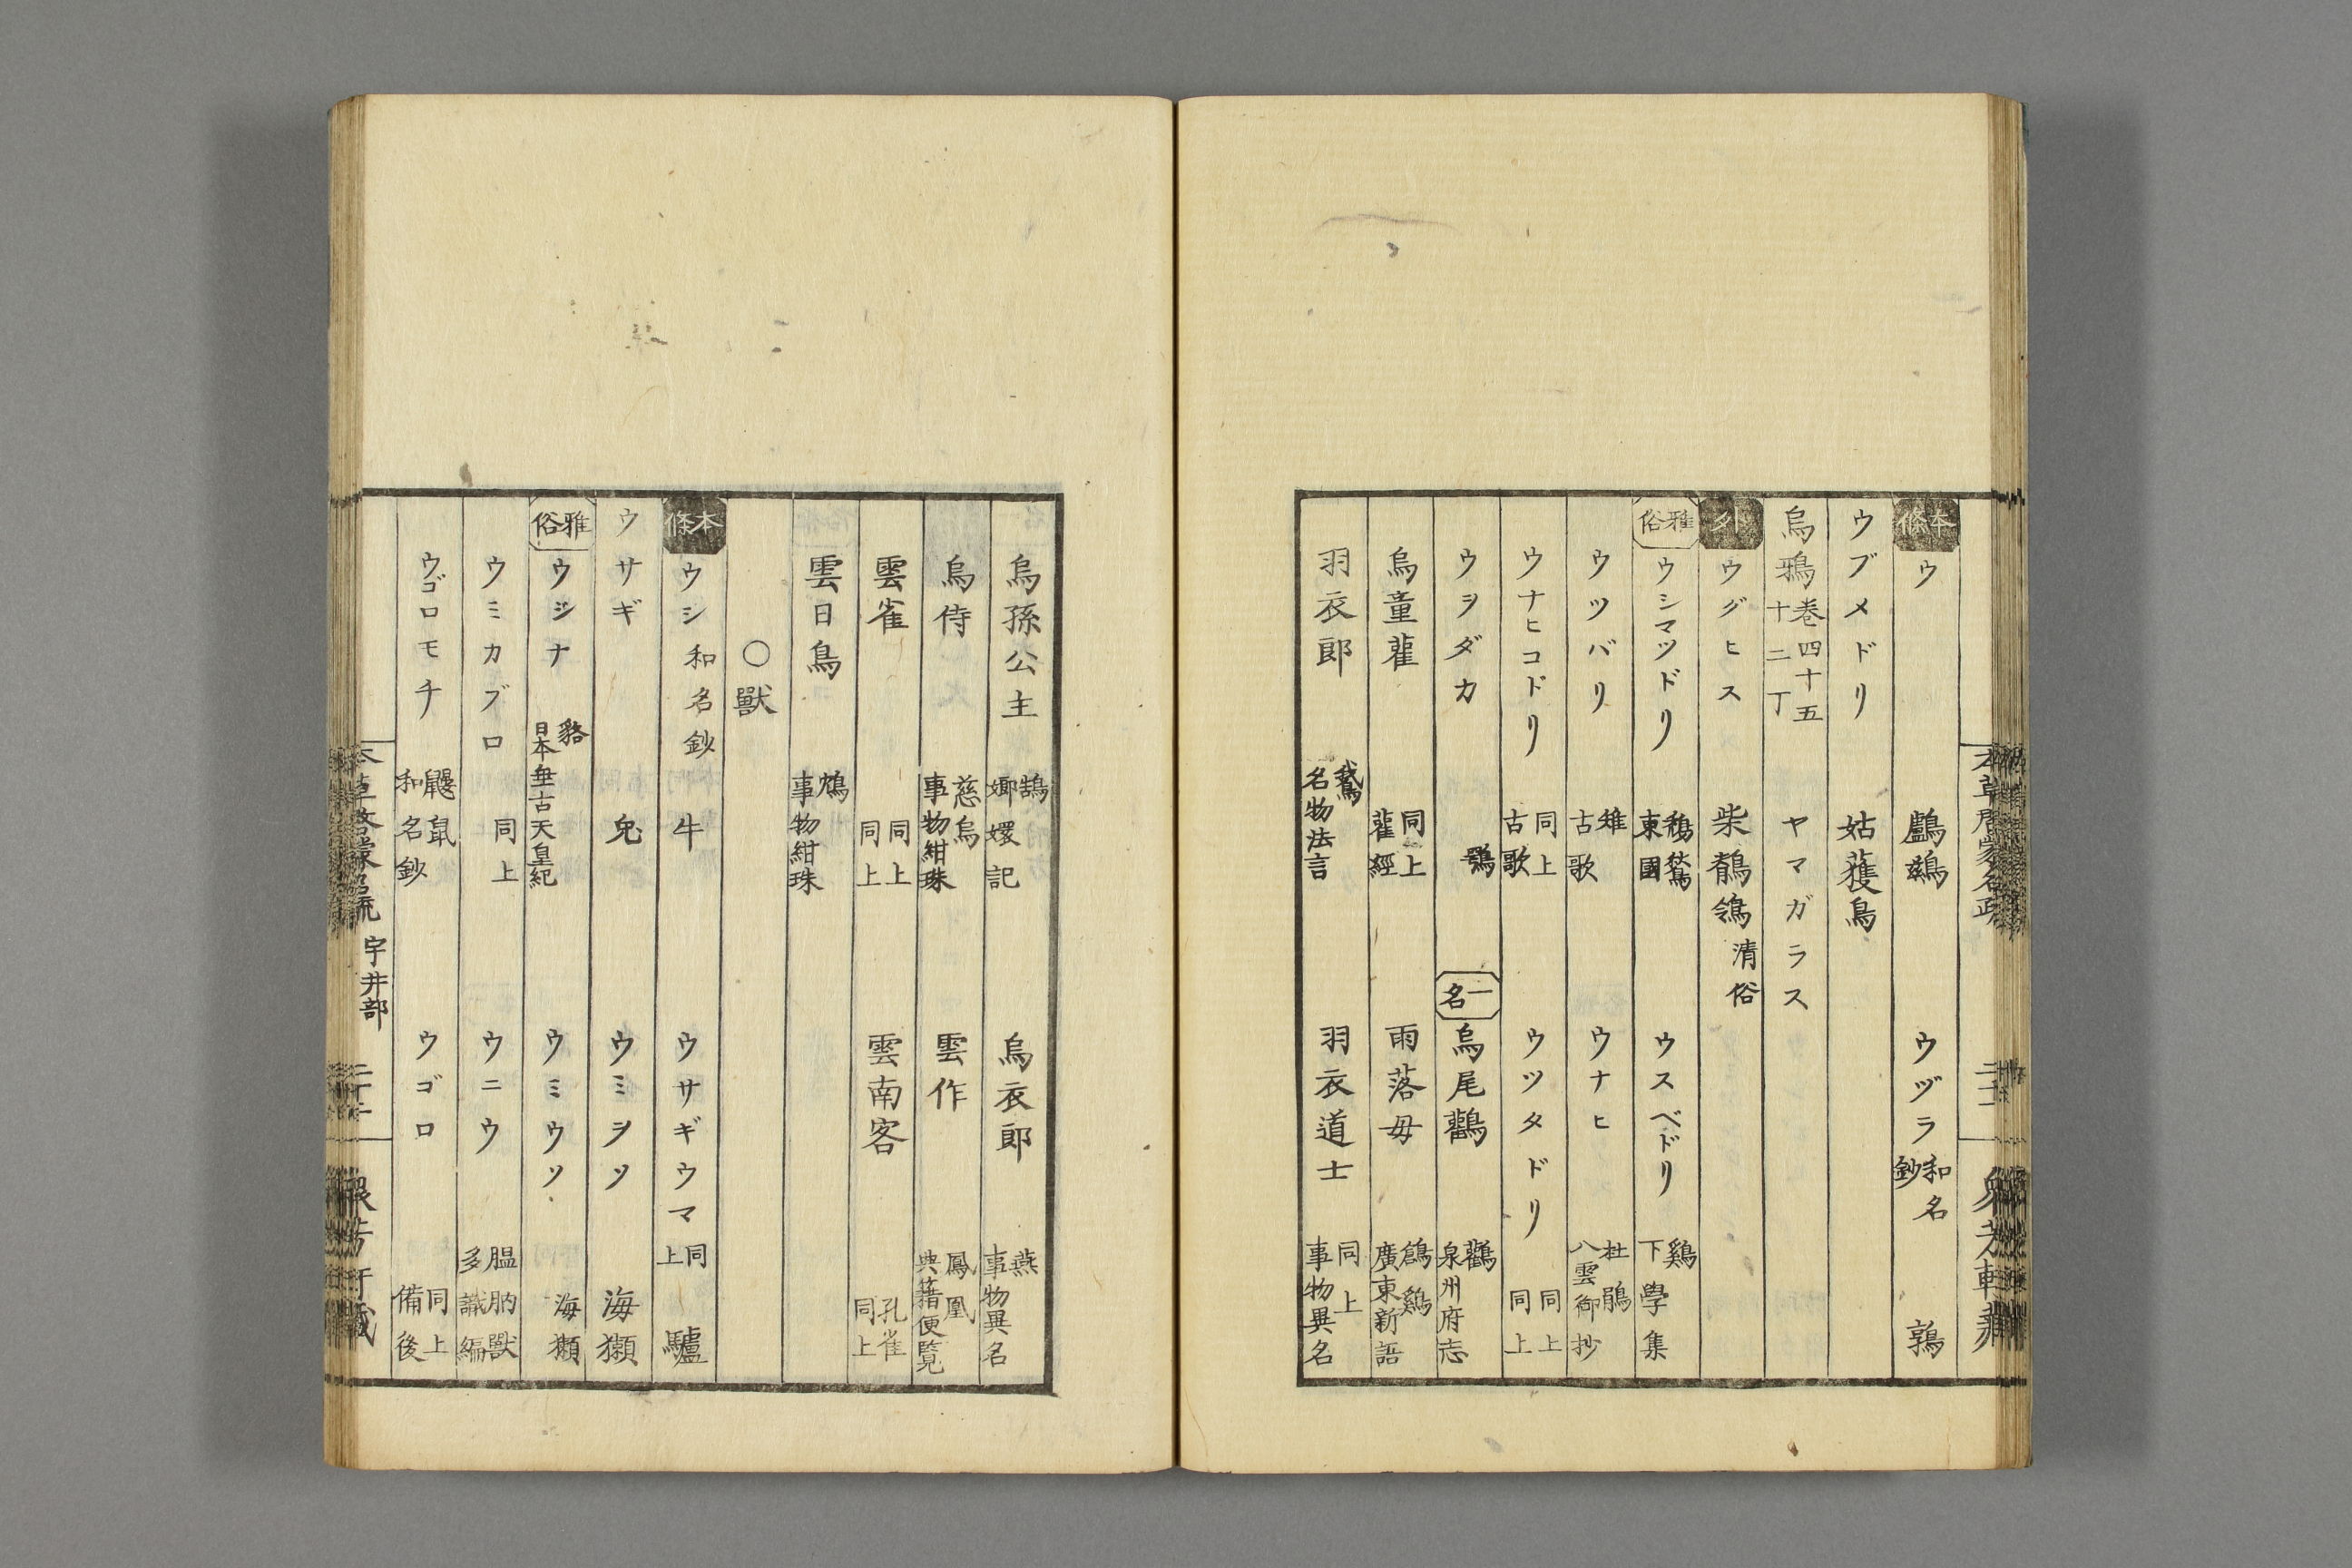 本條 ウ 鸕鷀 ウヅラ 和名鈔 鶉
ウブメドリ 姑蒦鳥
烏鴉 巻四十五 十二丁 ヤマガラス
外 ウグヒス 柴鶺鴒 清俗
雅俗 ウシマツドリ 東國 ウスベドリ 鷄 下學集
ウツバリ 雉 古歌 ウナヒ 杜鵑 八雲御抄
ウナヒコドリ 同上 古歌 ウツタドリ 同上 同上
ウヲダカ 鶚 一名 烏尾鸛 鸛 泉州府志
烏童雚 同上 雚經 雨落毋 鶬鷄 廣東新語
羽衣郎 鵞 名物法言 羽衣道士 同上 事物異名
烏孫公主 鵠 嫏嬛記 烏衣郎 燕 事物異名
烏侍 慈烏 事物紺珠 雲作 鳳凰 典籍便覧
雲雀 同上 同上 雲南客 孔雀 同上
雲日鳥 鴆 事物紺珠
○獸
本條 ウシ 和名鈔 牛 ウサギウマ 同上 驢
ウサギ 兔 ウミヲソ 海獺
雅俗 ウジナ 貉 日本垂古天皇紀 ウミウソ 海獺
ウミカブロ 同上 ウニウ 膃肭獸 多識編
ウゴロモチ 鼴鼠 和名鈔 ウゴロ 同上 備後
本草啓蒙名疏 宇井部 二十二